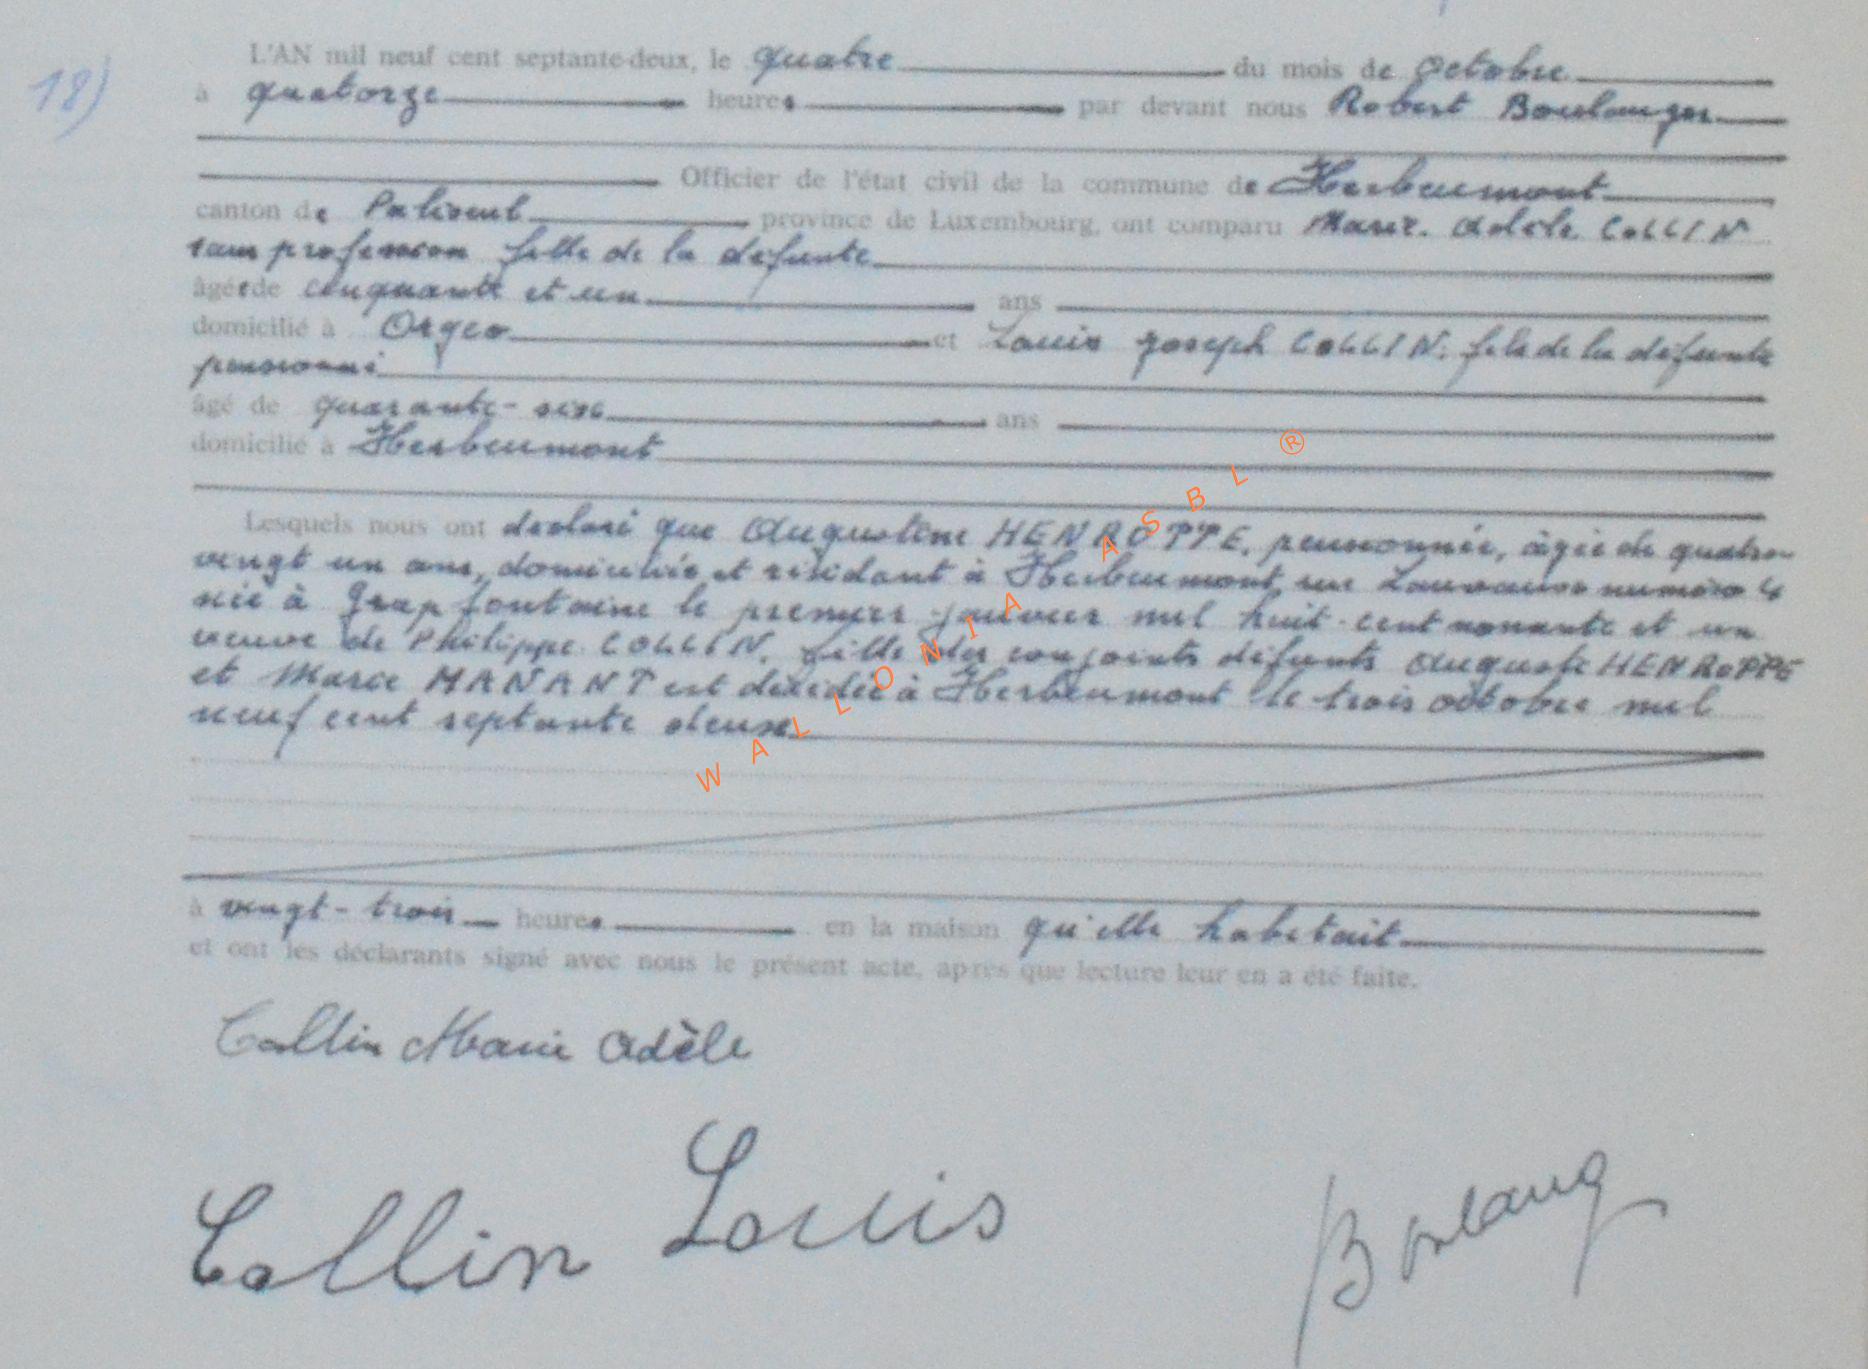 18)
L'AN mil neuf cent septante-deux, le quatre du mois de octobre
à quatorze heures par devant nous Robert Boulanger
Officier de l'état civil de la commune de Herbeumont
canton de Paliseul province de Luxembourg, ont comparu Marie Adèle COLLIN
sans profession fille de la défunte
âgée de cinquante et un ans
domicilié à Orgeo et Louis Joseph COLLIN, fils de la défunte
pensionné
âgé de quarante-six ans
domicilié à Herbeumont
Lesquels nous ont déclaré que Augustine HENROPPE, pensionnée, âgée de quatre
vingt un ans, domiciliée et résidant à Herbeumont rue numéro 4
née à Grapfontaine le premier janvier mil huit cent nonante et un
veuve de Philippe COLLIN, fille des conjoints défunts Auguste HENROPPE
et Marie MANANT est décédée à Herbeumont le trois octobre mil
neuf cent septante deux
à vingt-trois heures en la maison qu'elle habitait
et ont les déclarants signé avec nous le présent acte, après que lecture leur en a été faite.
Collin Marie Adèle
Collin Louis
Boulang
WALLONIA ASBL ®